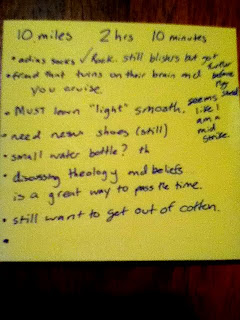 10 miles 2 hrs 10 minutes
• adias socks ✓ Rock. still blisters but got further before they started
• friend that turns on their brain and you cruise
• MUST learn "light" smooth.
seems like I am a mid strike.
• need new shoes (still)
• small water bottle? th
• discussing theology and beliefs
is a great way to pass the time.
• still want to get out of cotton.
•